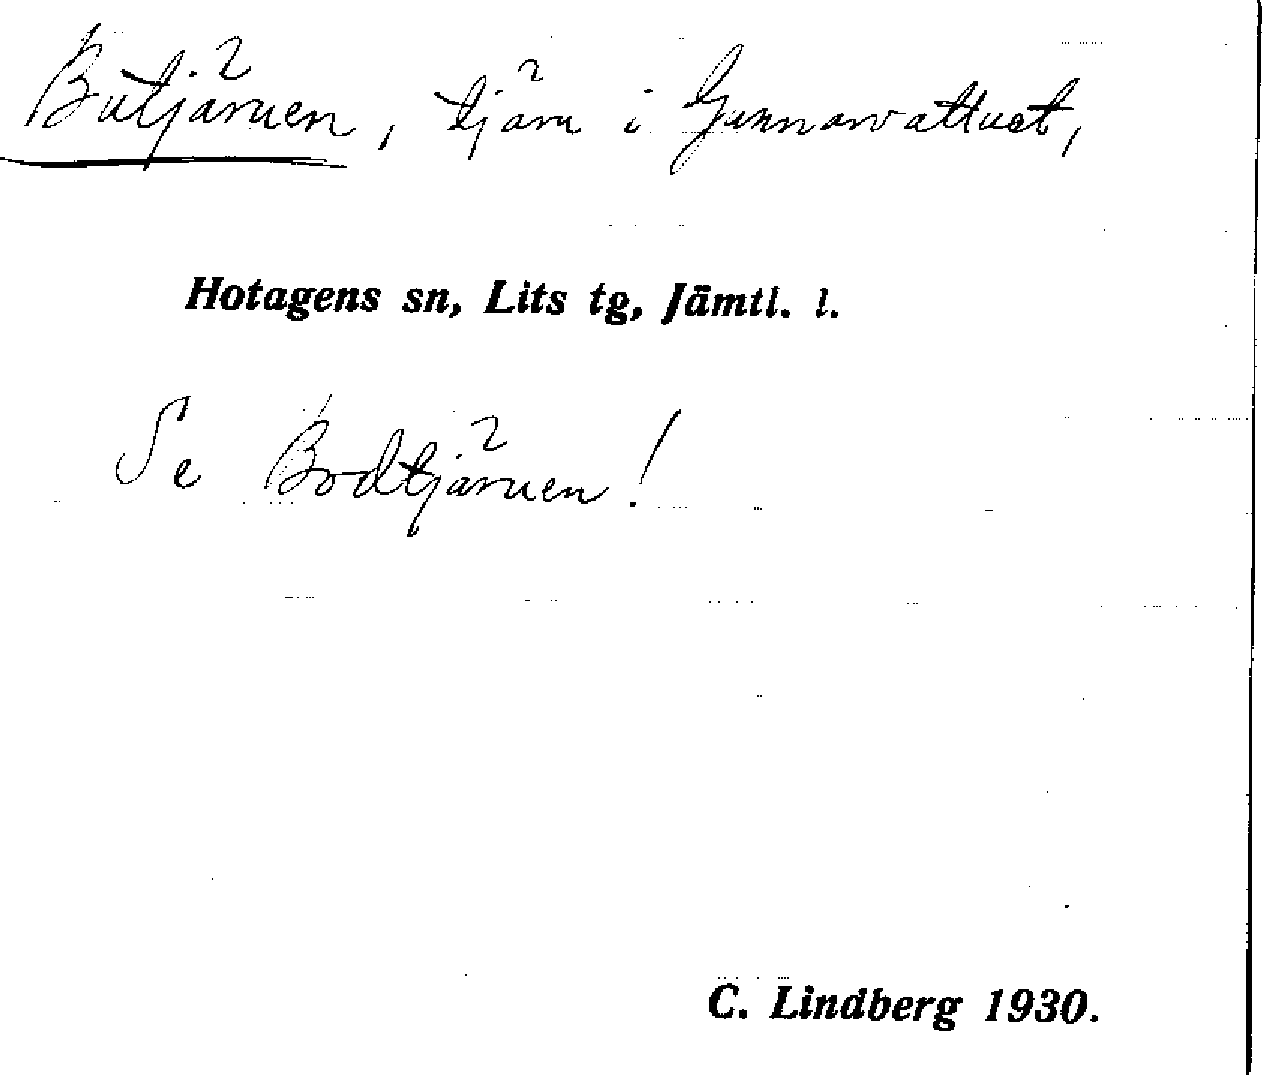 Butjärnen, tjärn i Gunnarvattnet,
Hotagens sn, Lits tg, Jämtl. l.
Se Bodtjärnen!
C. Lindberg 1930.